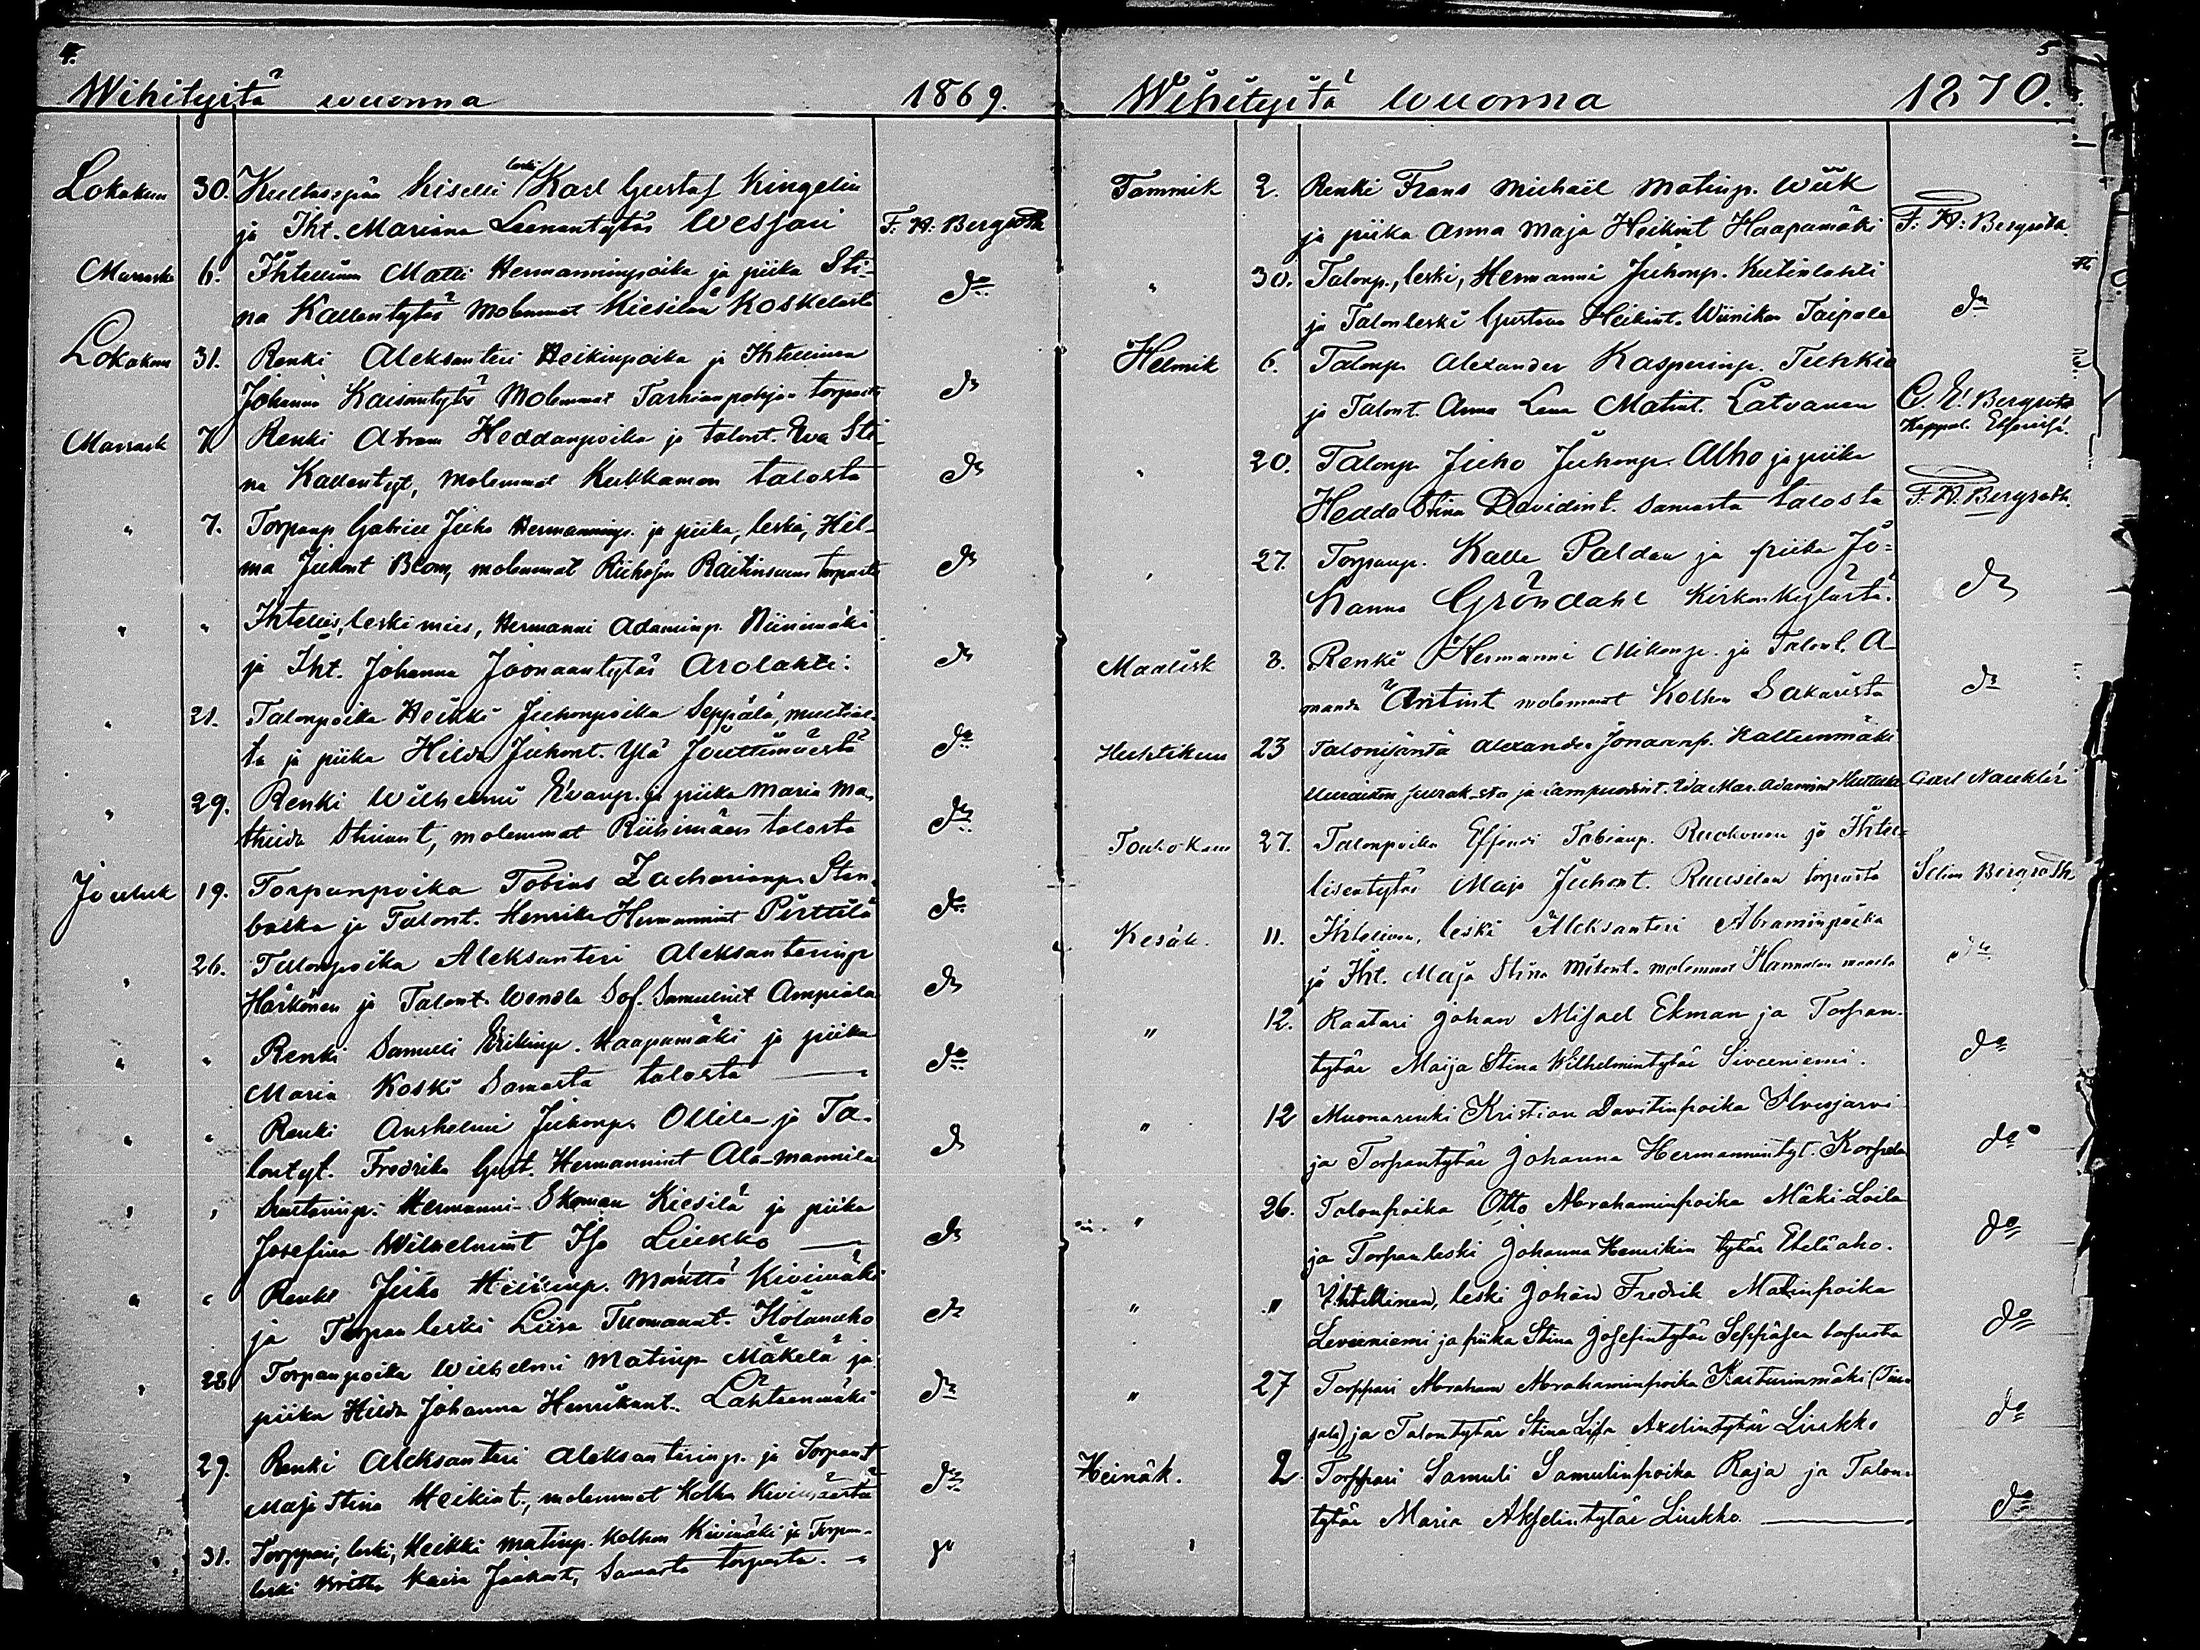 4.
Wihityitä wuonna 1869.
Lokakuu 30. Kultasepän Kiselli leski Karl Gustaf Kingelin
ja Iht. Mariana Leenantytär Wessari F. H. Bergroth
Marrask 6. Ihtellinen Matti Hermanninpoika ja piika Sti-
na Kallentytär molemmat Kiesilän Koskelasta do
Lokakuu 31. Renki Aleksanteri Heikinpoika ja Ihtellinen
Johanna Kaisantytär molemmat Tarhianpohjan torpasta do
Marrask 7 Renki Abram Heddanpoika ja talont. Eva Sti-
na Kallentyt, molemmat Kukkamon talosta do
" 7. Torpanp Gabriel Juho Hermanninp. ja piika, leski, Hil-
ma Juhont Blom, molemmat torpasta do
" " Ihtellis, leski mies, Hermanni Adaminp. Niinimäki
ja Iht. Johanna Joonaantytär Arolahti. do
" 21. Talonpoika Heikki Juhonpoika Seppälä,
ta ja piika Hilda Juhont. Ylä Jouttimäestä do
" 29. Renki Wilhelmi Evanp. ja piika Maria Ma-
thilda Stinant, molemmat Riihimäen talosta do
Jouluk 19. Torpanpoika Tobias Zacharianp. Sten-
backa ja Talont. Henrika Hermannint Pirttilä do
" 26. Talonpoika Aleksanteri Aleksanterinp
Härkönen ja Talont. Wendla Sof. Samulint Ampiala do
" " Renki Samuli Erikinp. Haapamäki ja piika
Maria Koski Samasta talosta do
" " Renki Anshelmi Juhonp. Ollila ja Ta-
lontyt. Fredrika Gust. Hermannint Ala-Mannila do
" " Hermanni Skoman Kiesilä ja piika
Josefina Wilhelmint Iso Liukko do
" " Renki Juho Heikinp. Mänttä Kivimäki
ja Torpan leski Liisa Tuomaant. do
" 28. Torpanpoika Wilhelmi Matinp. Mäkelä ja
piika Hilda Johanna Henrikint. Lähteenmäki do
" 29. Renki Aleksanteri Aleksanterinp. ja Torpant
Maja Stina Heikint., molemmat Kolhon Kivimäestä do
" 31. Torppari, leski, Heikki Matinp. Kolhon Kivimäki ja Torpan-
leski Kaisa Jaakont, Samasta torpasta. do
5
Wihityitä wuonna 1870.
Tammik 2. Renki Frans Michaël Matinp. Wiik
ja piika Anna Maja Heikint Haapamäki F. H. Bergroth.
" 30. Talonp., leski, Hermanni Juhonp. Kutinlahti
ja Talonleski Gustava Heikint. Wiinikan Taipale do
Helmik 6. Talonp. Alexander Kasperinp. Tuhkio
ja Talont. Anna Lena Matint. Latvanen C. E. Bergroth
Kappal. Etseris.
" 20. Talonp. Juho Juhonp. Alho ja piika
Hedda Stina Davidint. Samasta talosta F. H. Bergroth.
" 27. Torpanp. Kalle Paldan ja piika Jo-
hanna Gröndahl Kirkonkylästä. do
Maalisk 8. Renki Hermanni Mikonp. ja Talont. A-
manda Antint molemmat Kolhon Sakarista do
Huhtikuu 23 Talonisäntä Alexander Jonaanp. Kalteenmäki
ja lampuodint. Ida Mar. Adamint Carl Nauklér
Toukokuu 27. Talonpoika Efraimi Tobianp. Ruokonen ja Ihtel-
lisentytär Maja Juhont. Ruusilan torpasta Selim Bergroth
Kesäk. 11. Ihtelinen, leski Aleksanteri Abraminpoika
ja Iht. Maja Stina Mikont. molemmat Hannulan maalta do
" 12. Raatari Johan Misael Ekman ja Torpan-
tytär Maija Stina Wilhelmintytär Siveeniemi. do
" 12 Muonarenki Kristian Davitinpoika Ilvesjärvi
ja Torpantytär Johanna Hermannintyt. Korpela do
" 26. Talonpoika Otto Abrahaminpoika Mäki-Loila
ja Torpanleski Johanna Henrikin tytär Eteläaho. do
" " Ihtellinen, leski Johan Fredrik Matinpoika
Leveeniemi ja piika Stina Josefintytär Seppäsen torpasta do
" 27 Torppari Abraham Abrahaminpoika Karturinmäki (Tai-
pale) ja Talontytär Stina Lisa Axelintytär Liukko do
Heinäk. 2 Torppari Samuli Samulinpoika Raja ja Talon-
tytär Maria Akselintytär Liukko. do